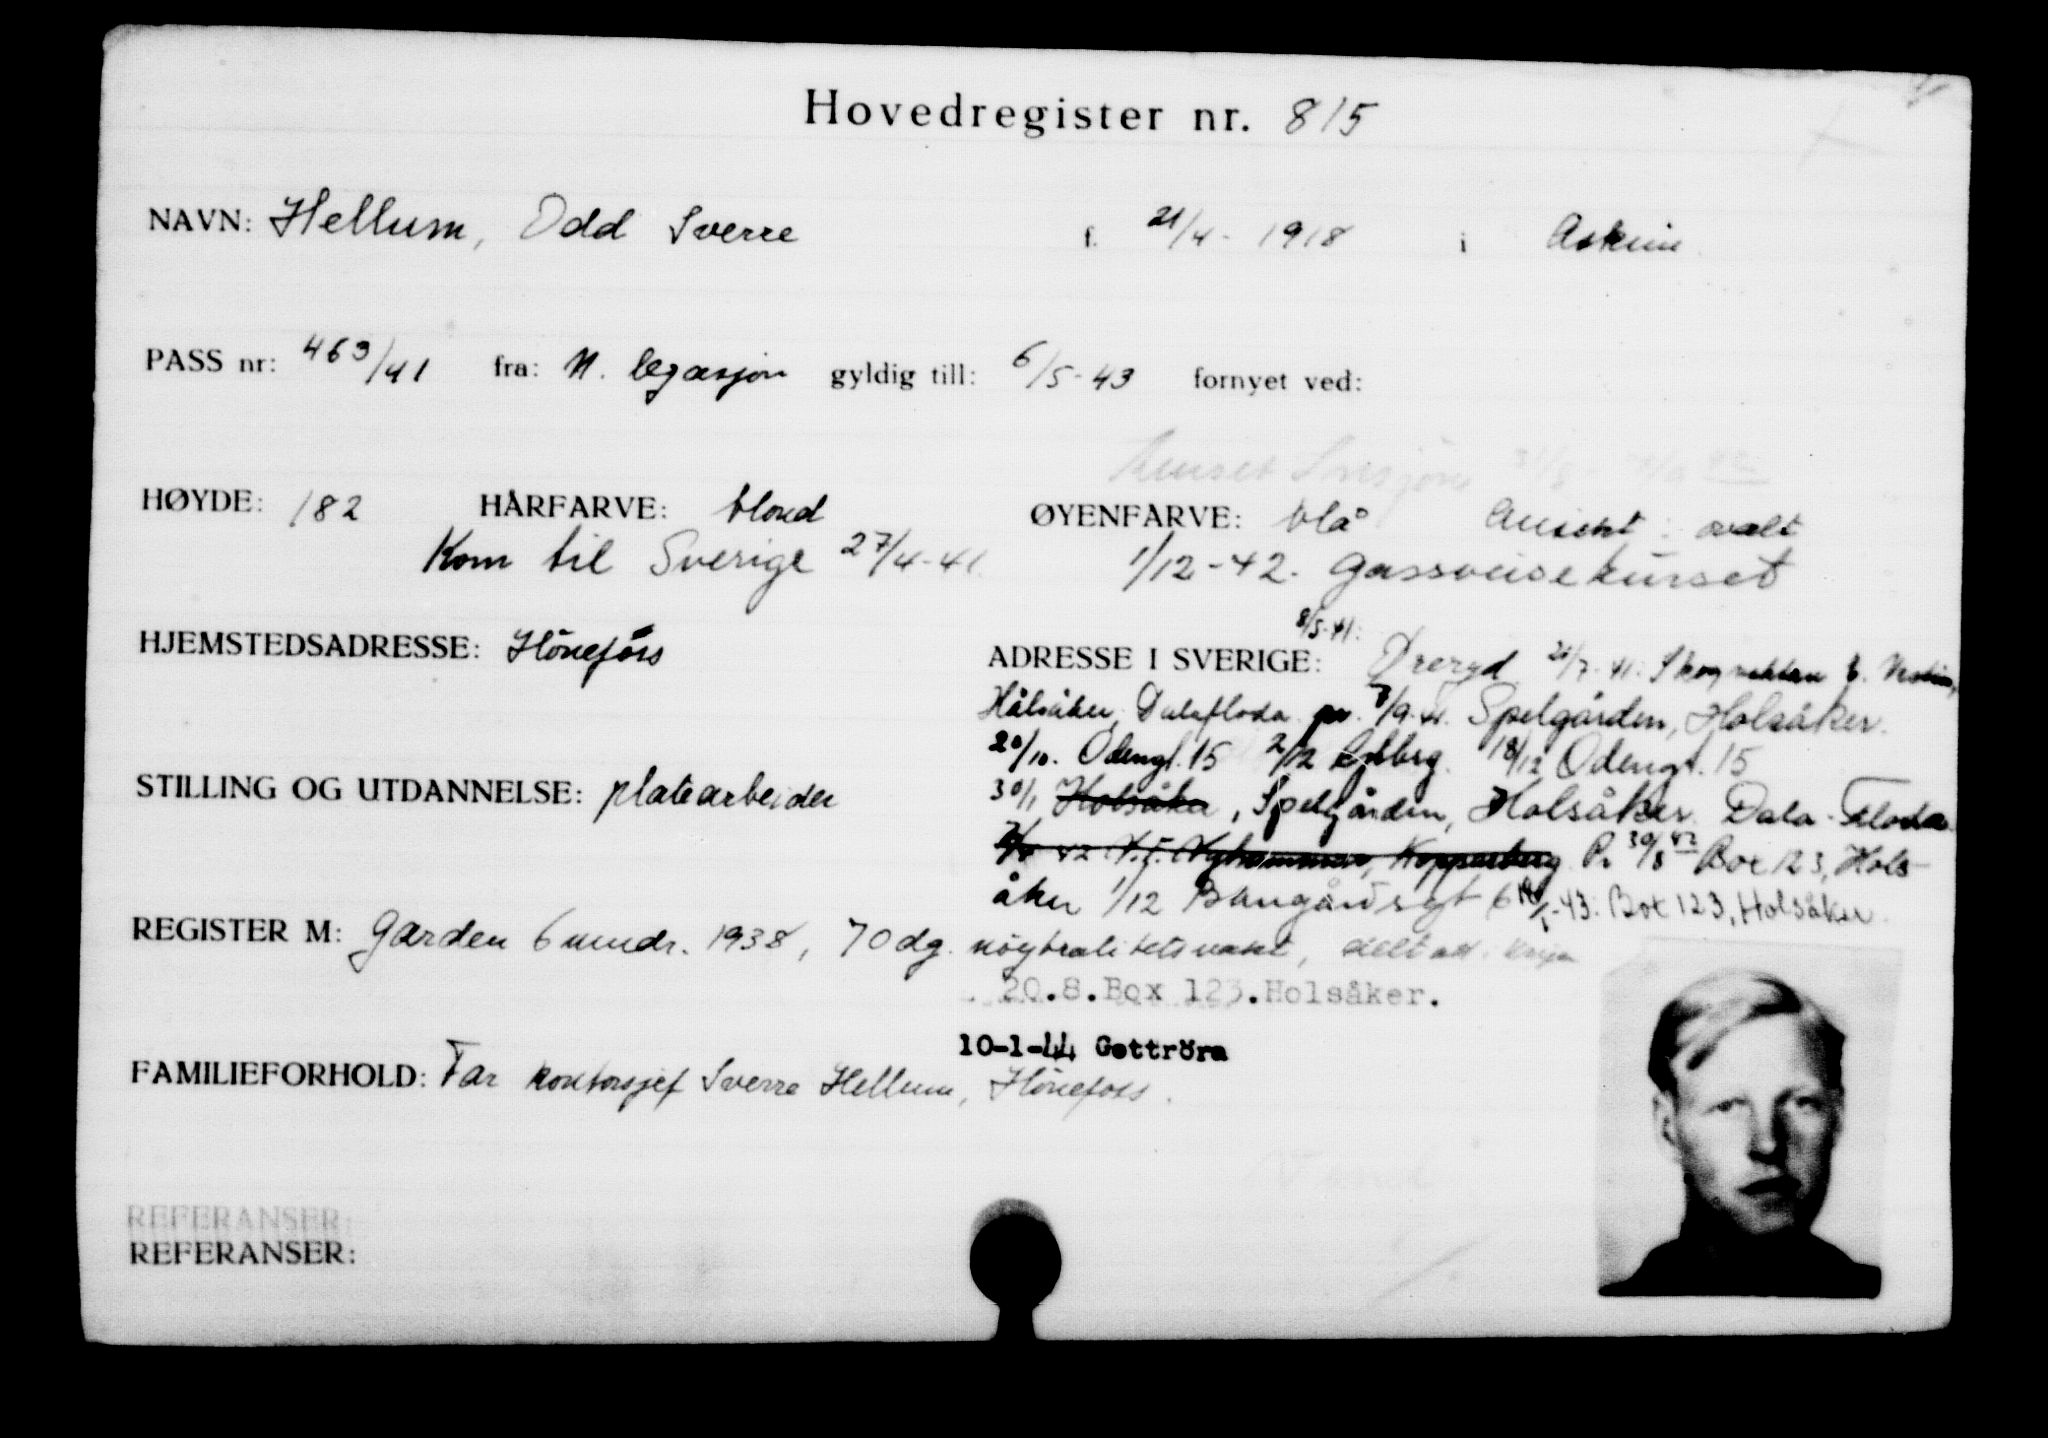 Hovedregister nr. 815
NAVN: Hellum, Odd Sverre f. 21/4-1918 i Askim
PASS nr: 463/41 fra: N. legasjon gyldig till: 6/5-43 fornyet ved:
Kurset
HØYDE: 182 HÅRFARVE: blond ØYENFARVE: blå Ansikt: ovalt
Kom til Sverige 27/4-41. 1/12-42. Gassveisekurset
8/5-41:
HJEMSTEDSADRESSE: Hönefoss ADRESSE I SVERIGE: Öreryd 21/7-41:
Hålsåker, Dalafloda 7/9-41. Spelgården, Holsåker.
20/10. Odengt. 15 2/12 18/12 Odengt. 15
STILLING OG UTDANNELSE: platearbeider 30/1 Holsåker, Spelgården, Holsåker Dala-Floda
42 Nyhammar, Kopparberg Pr 30/8 42 Box 123, Hols-
åker 1/12 Bangårdsgt 6 -43: Box 123, Holsåker.
REGISTER M: Garden 6 mndr. 1938, 70 dg. nøytralitetsvakt, deltatt i krigen
20.8.Box 123.Holsåker.
10-1-44 Gottröra
FAMILIEFORHOLD: Far kontorsjef Sverre Hellum, Hönefoss.
REFERANSER:
REFERANSER: